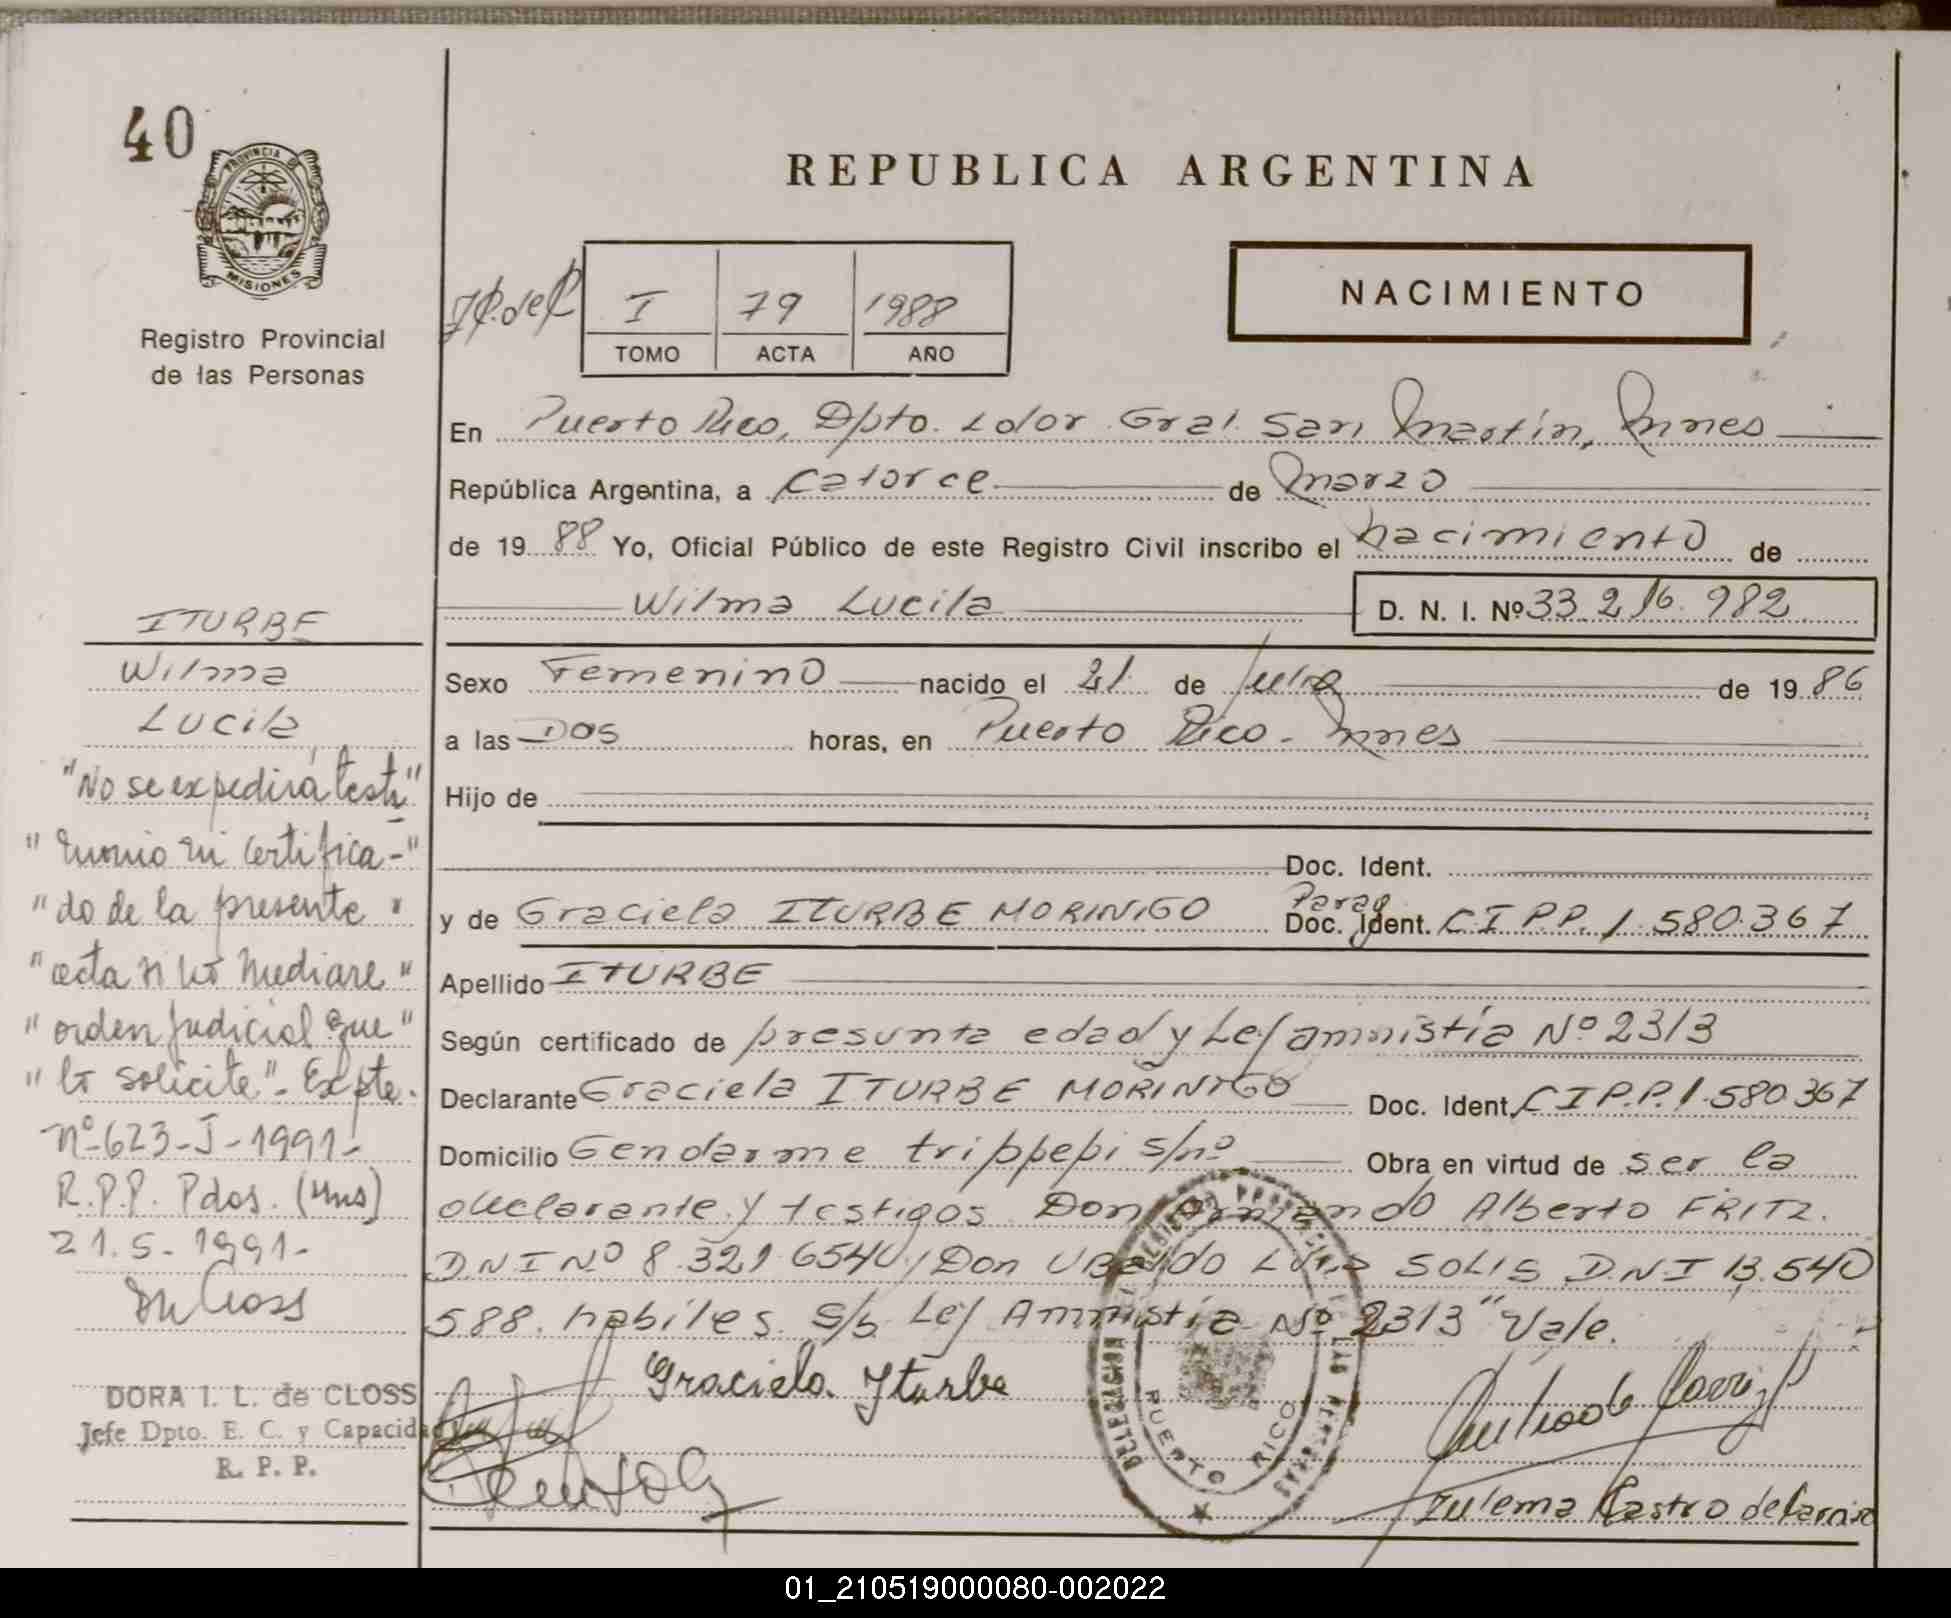 40
PROVINCIA DE
MISIONES
Registro Provincial
de las Personas
REPUBLICA ARGENTINA
I 79 1988
TOMO ACTA AÑO
NACIMIENTO
En Puerto Rico, Dpto. Ldor Gral. San Martín, Mnes
República Argentina, a catorce de Marzo
de 19 88 Yo, Oficial Público de este Registro Civil inscribo el nacimiento de
Wilma Lucila D. N. I. Nº 33.216.982
Sexo Femenino nacido el 21 de Julio de 19 86
a las Dos horas, en Puerto Rico - Mnes
Hijo de
Doc. Ident.
Parag
y de Graciela ITURBE MORINIGO Doc. Ident. C.I P.P. 1.580.367
Apellido ITURBE
Según certificado de presunta edad y Ley amnistía Nº 2313
Declarante Graciela ITURBE MORINIGO Doc. Ident. C I P.P. 1.580.367
Domicilio Gendarme trippepi s/nº Obra en virtud de ser la
declarante y testigos Don Armando Alberto FRITZ.
D.N.I Nº 8.321.654 y Don Ubaldo Luis SOLIS D.N.I 13.540
588. habiles. s/b Ley Amnistía Nº 2313 "Vale.
Graciela Iturbe
Zulema Castro de
DELEGACION
DE LAS PERSONAS
PUERTO RICO
ITURBE
Wilma
Lucila
"No se expedirá testi"
"monio ni certifica-"
"do de la presente"
"acta si no mediare"
"orden judicial que"
"lo solicite"- Expte.
nº-623-J-1991-
R.P.P. Pdas. (Mns)
21.5-1991-
DORA I. L. de CLOSS
Jefe Dpto. E. C. y Capacidad
R. P. P.
01_210519000080-002022